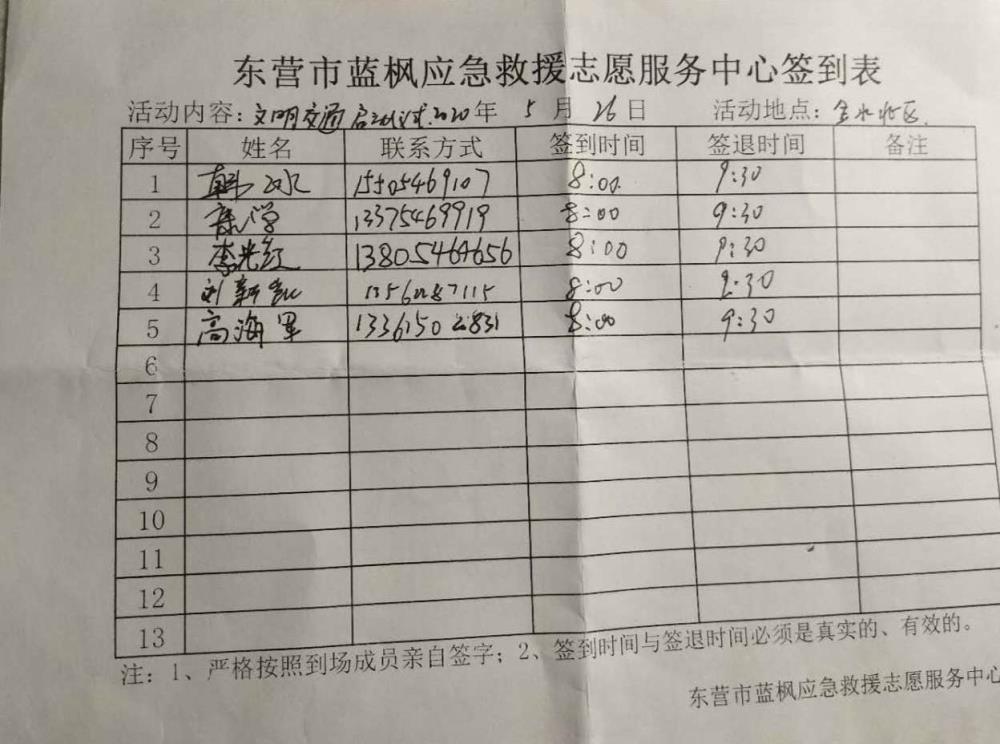 东营市蓝枫应急救援志愿服务中心签到表
活动内容：文明交通启动仪式 2020年 5月 26日 活动地点：
序号 姓名 联系方式 签到时间 签退时间 备注
1 韩冰 15505469107 8:00 9:30
2 13375469919 8:00 9:30
3 李光红 13805464656 8:00 9:30
4 刘新凯 8:00 9:30
5 高海军 13361502831 8:00 9:30
6
7
8
9
10
11
12
13
注：1、严格按照到场成员亲自签字；2、签到时间与签退时间必须是真实的、有效的。
东营市蓝枫应急救援志愿服务中心